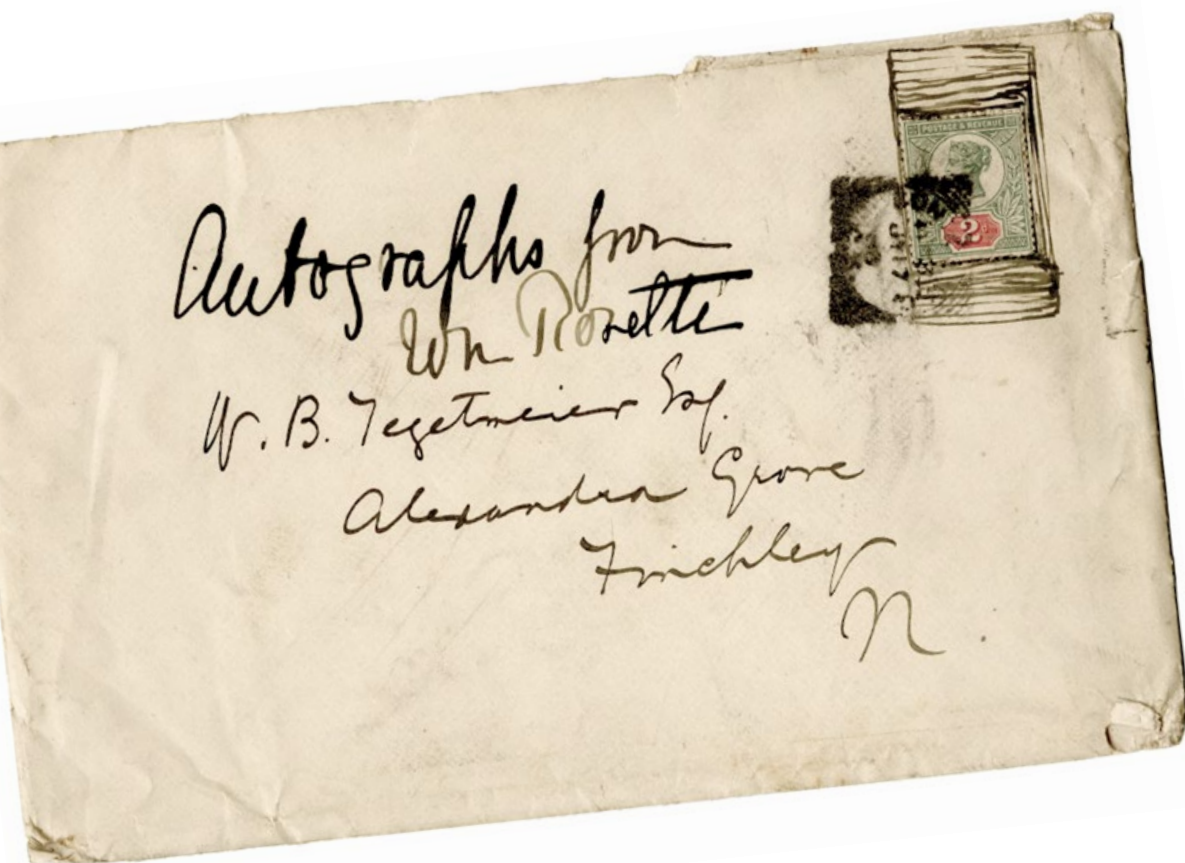 Autographs from
Wm Rosetti
W. B. Tegetmeier Esq.
Alexandra Grove
Finchley
N.
POSTAGE & REVENUE
2d